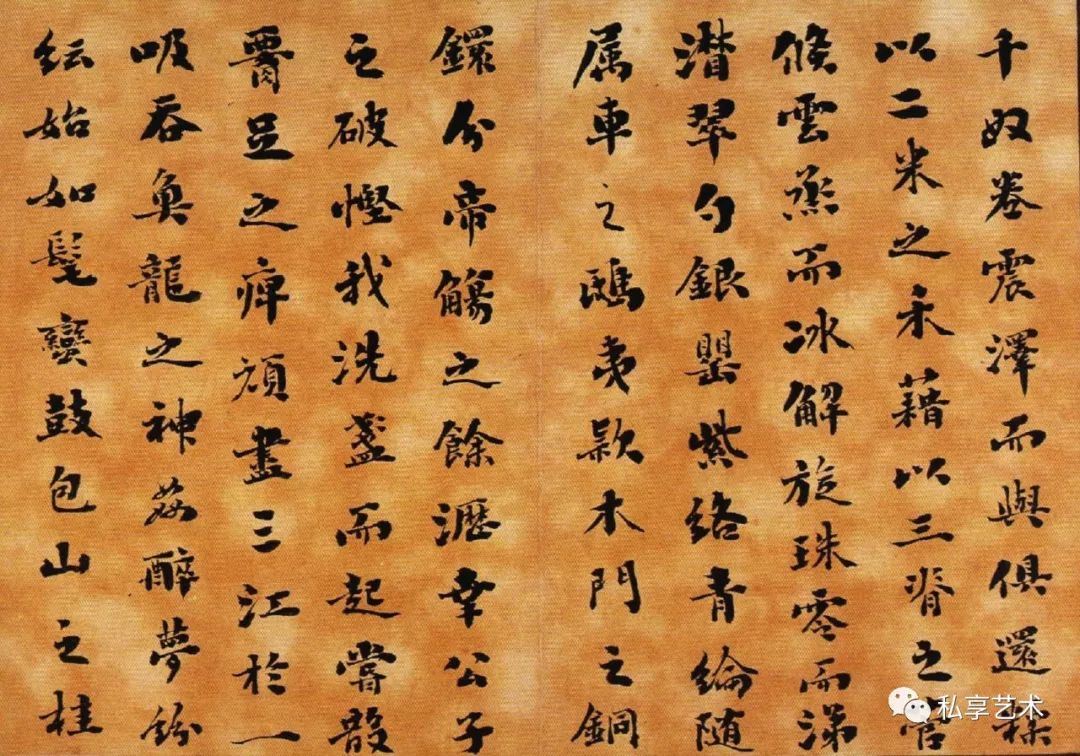 千奴卷震澤而與俱還糅
以二米之禾藉以三脊之菅
倏雲烝而冰解旋珠零而涕
潸翠勺銀罌紫絡青綸随
属車之鴟夷款木門之銅
鐶分帝觴之餘瀝幸公子
之破慳我洗盞而起嘗散
腰足之痺頑盡三江於一
吸吞魚龍之神姦醉夢紛
紜始如髦蠻鼓包山之桂
私享艺术